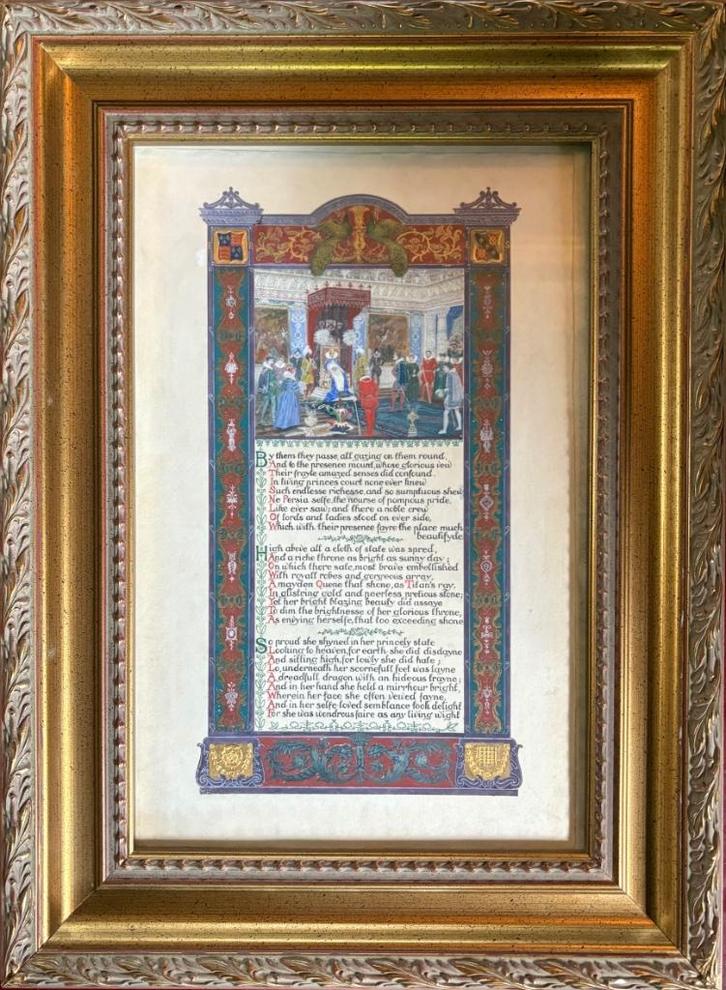 By them they passe, all gazing on them round,
And to the presence mount, whose glorious vew
Their frayle amazed senses did confound.
In living princes court none ever knew
Such endlesse richesse, and so sumptuous shew
Ne Persia selfe, the nourse of pompous pride,
Like ever saw; and there a noble crew
Of lords and ladies stood on ever side,
Which with their presence fayre the place much
beautifyde
High above all a cloth of state was spred,
And a riche throne as bright as sunny day;
On which there sate, most brave embellished
With royall robes and gorgeous array,
A mayden Quene that shone, as Titan's ray.
In glistring gold and peerless pretious stone;
Yet her bright blazing beauty did assaye
To dim the brightnesse of her glorious throne,
As envying herselfe, that too exceeding shone
So proud she shyned in her princely state
Looking to heaven, for earth she did disdayne
And sitting high, for lowly she did hate;
Lo, underneath her scornefull feet was layne
A dreadfull dragon with an hideous trayne;
And in her hand she held a mirrhour bright,
Wherein her face she often vewed fayne,
And in her selfe loved semblance took delight
For she was wondrous faire as any living wight